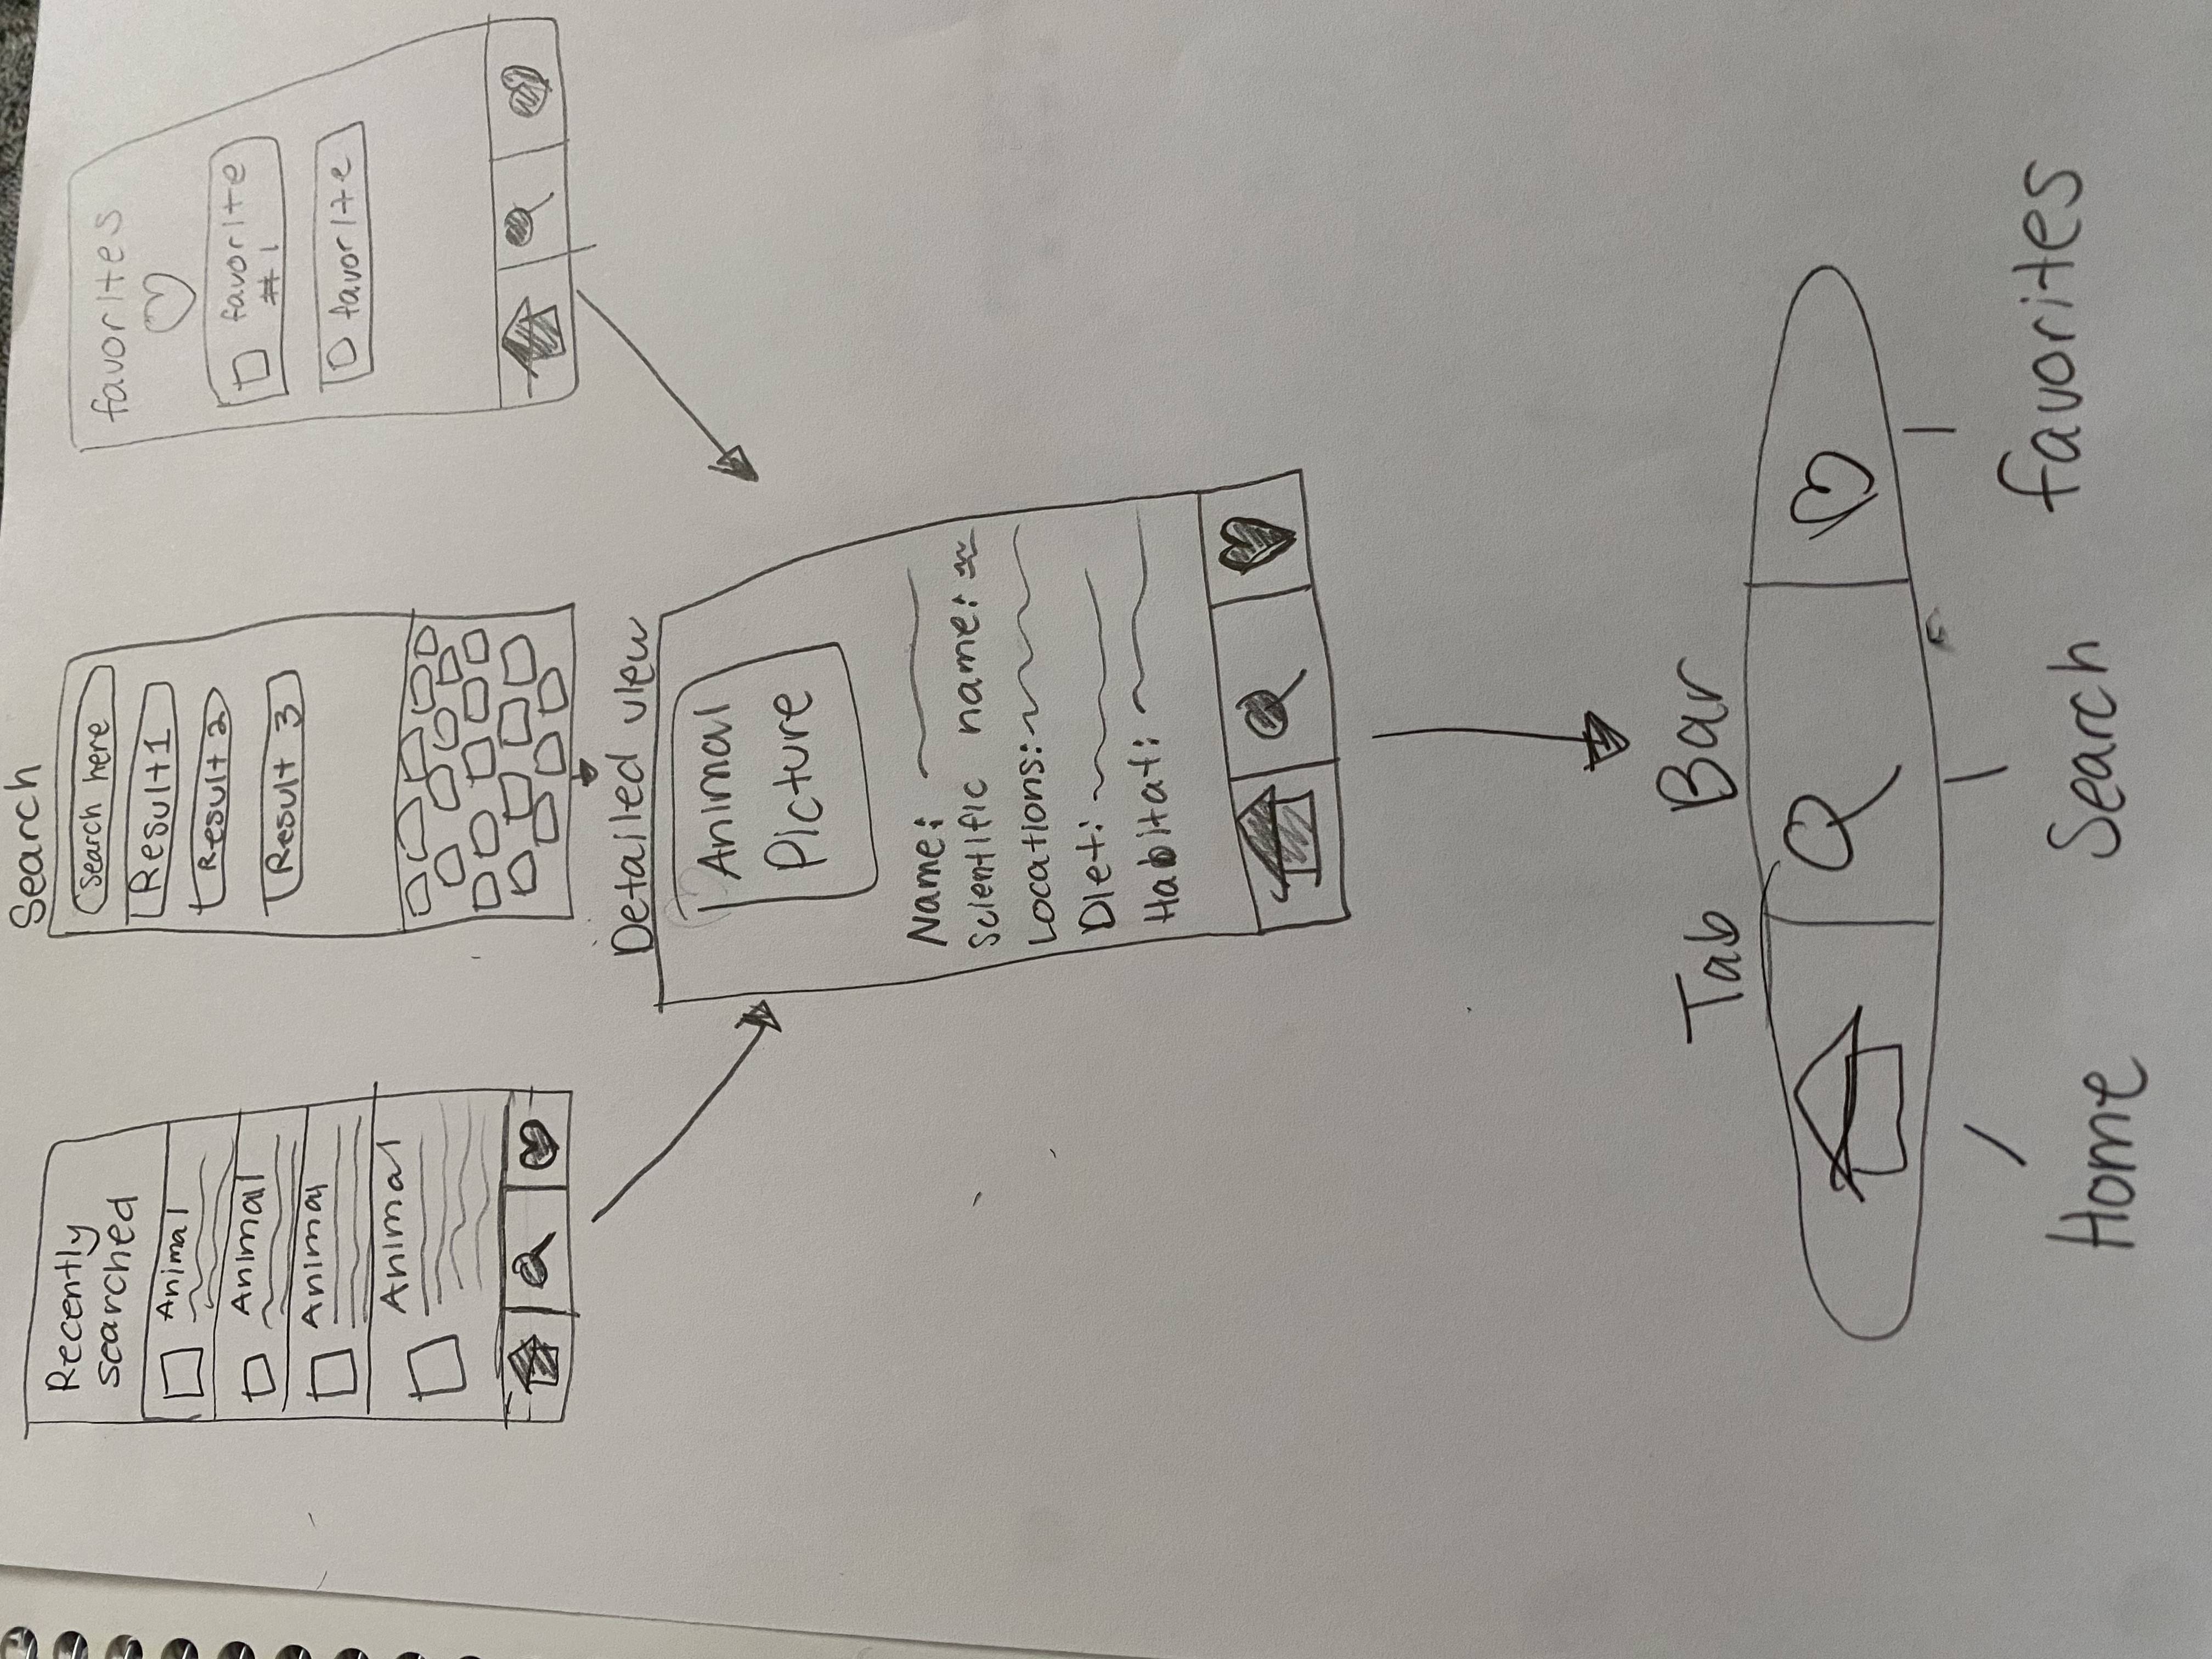 Recently
searched
Animal
Animal
Animal
Animal
Search
Search here
Result 1
Result 2
Result 3
favorites
favorite
# 1
favorite
Detailed view
Animal
Picture
Name:
Scientific name:
Locations:
Diet:
Habitat:
Tab Bar
Home
Search
favorites